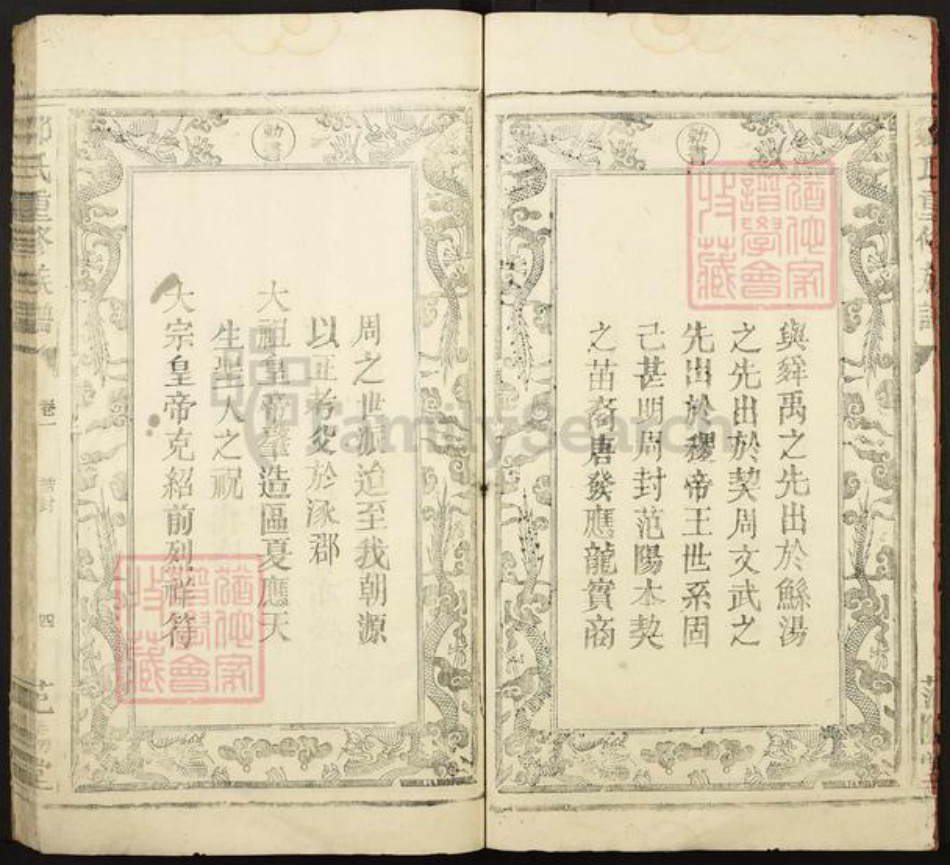 勅書
與舜禹之先出於鯀湯
之先出於契周文武之
先出於稷帝王世系固
己甚明周封范陽本契
之苗裔唐發應龍實商
勅書
周之世派迨至我朝源
以正考父於涿郡
大祖皇帝肇造區夏應天
生聖人之祝
大宗皇帝克紹前烈祥符
鄒氏重修族譜
卷一
誥封
四
范陽堂
FamilySearch